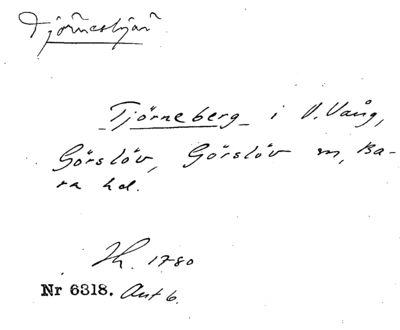 Tjörneshjär
Tjörneberg i V. Vång,
Görslöv, Görslöv sn, Ba-
ra hd.
Jh. 1780
Nr 6318. Ant 6.